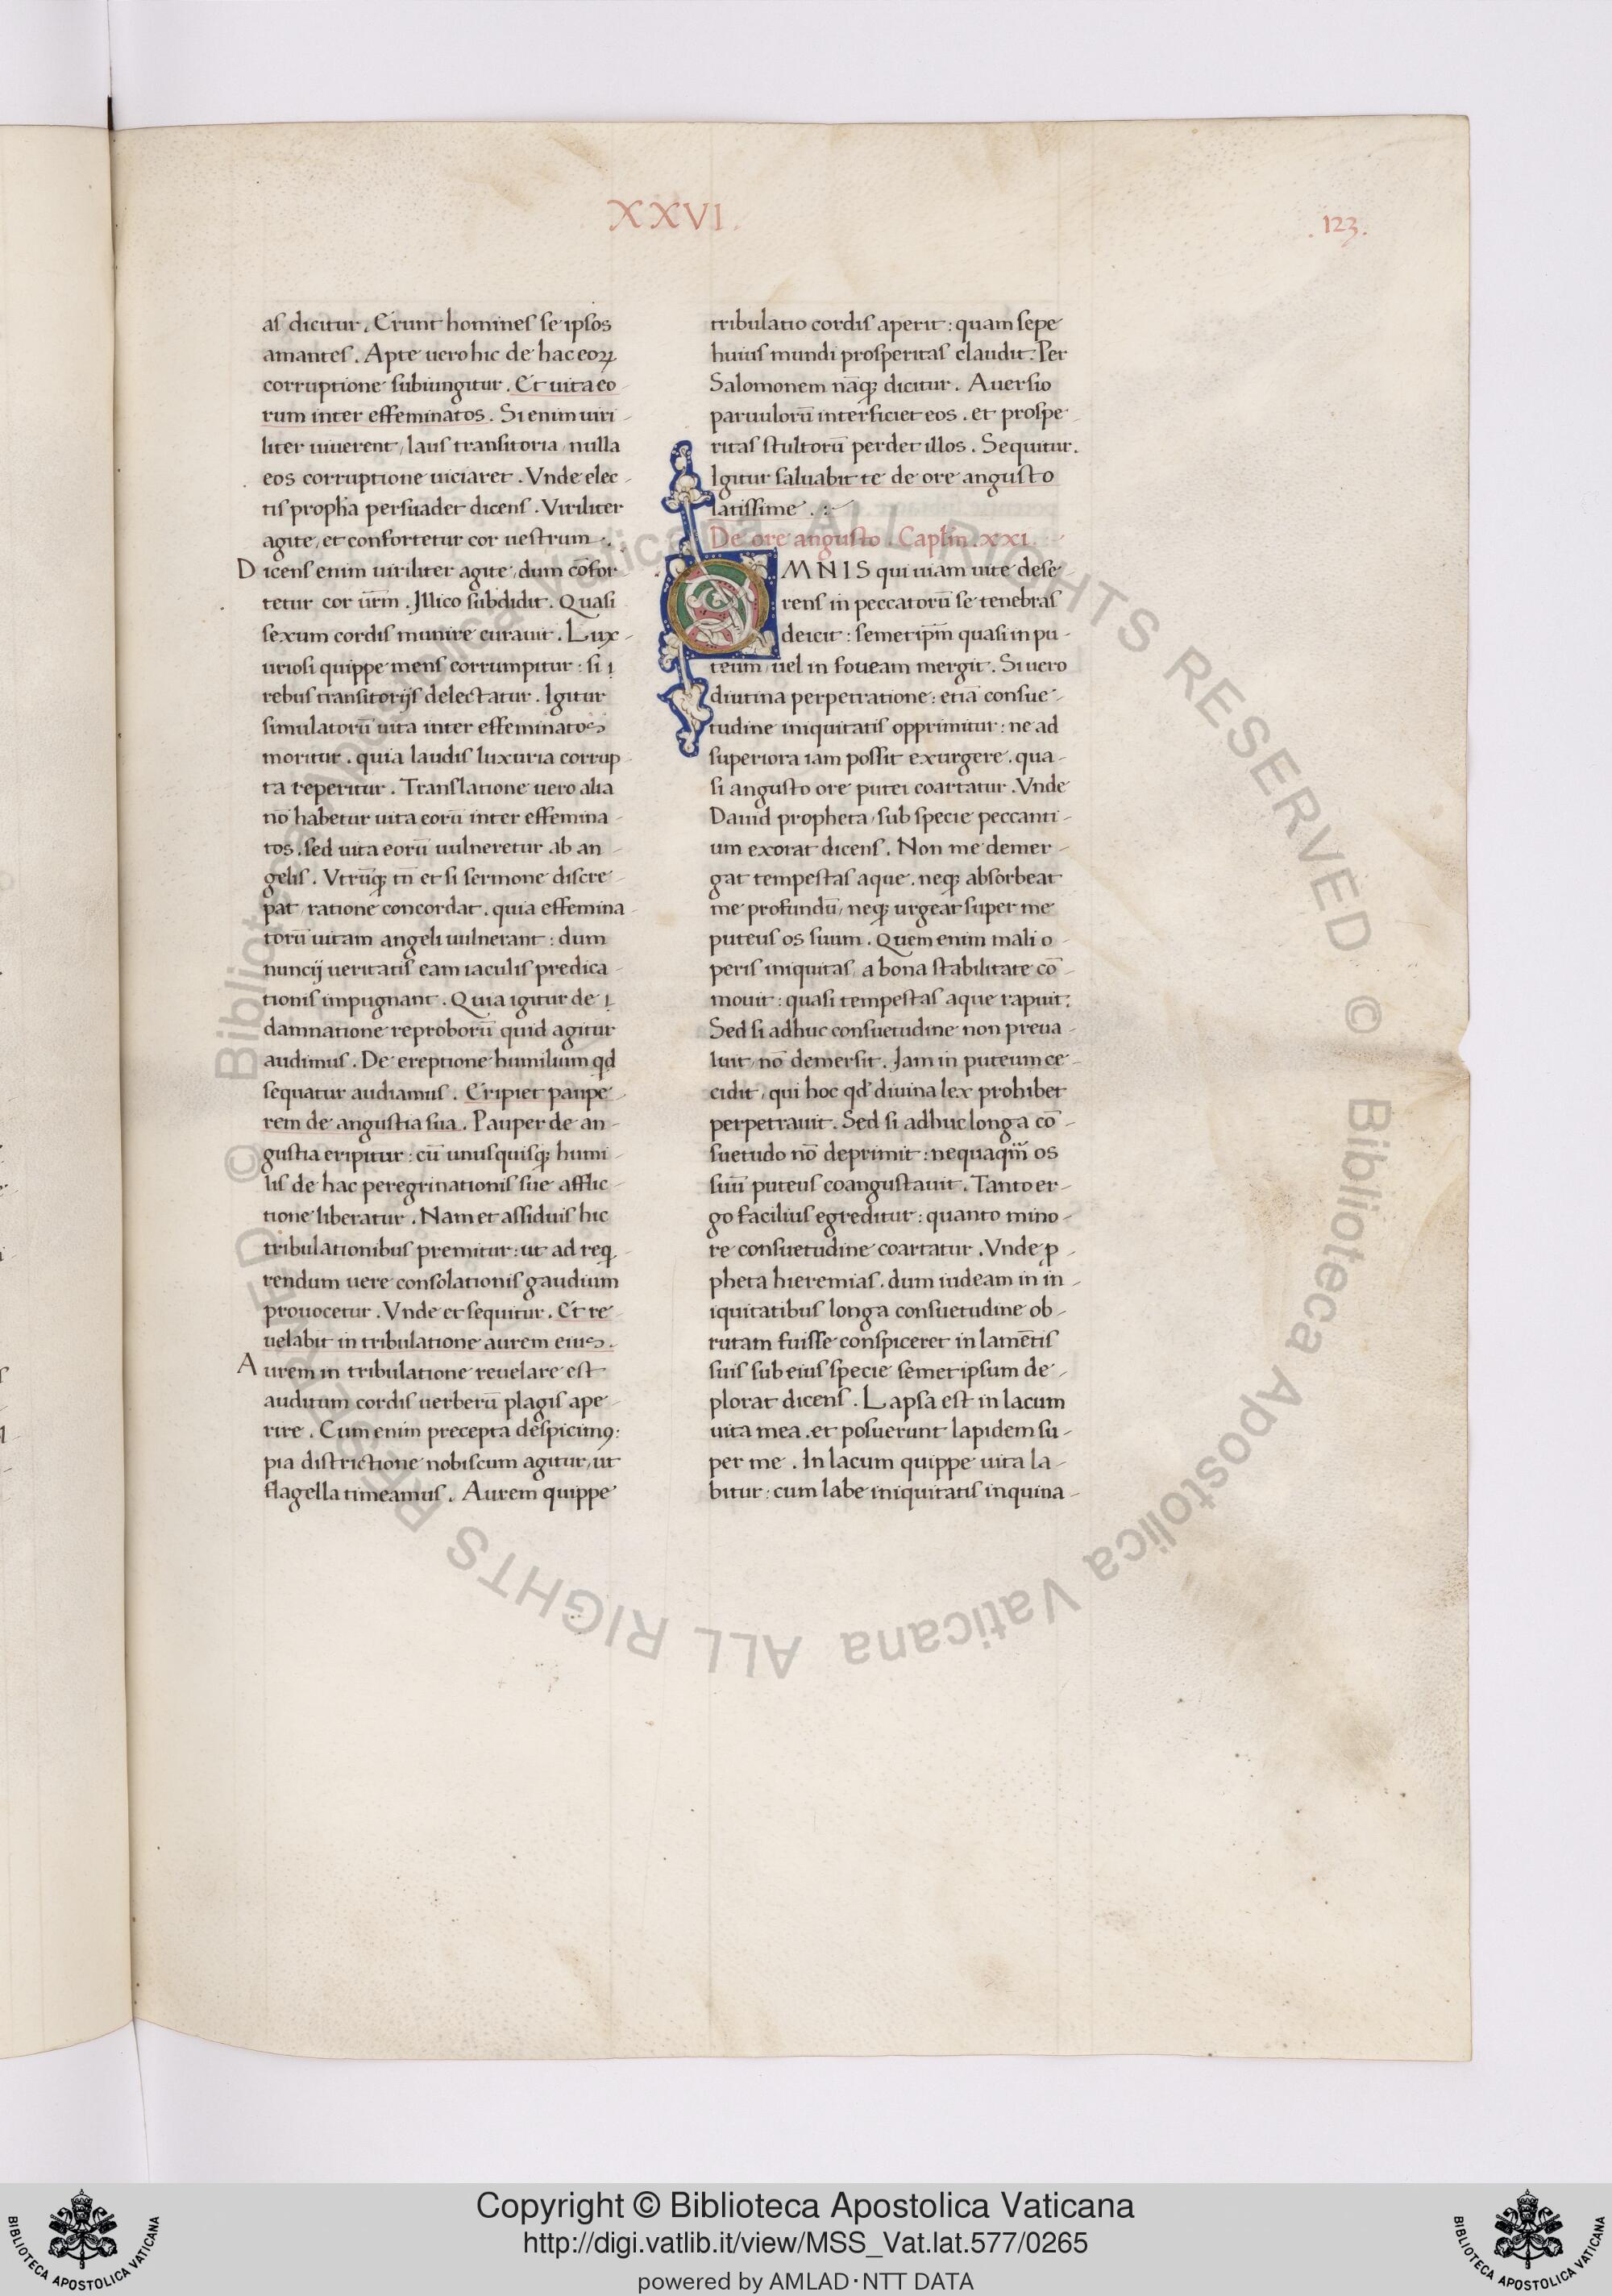 XXVI.
.123.
as dicitur. Erunt homines se ipsos
amantes. Apte uero hic de hac eoꝝ
corruptione subiungitur. Et uita eo-
rum inter effeminatos. Si enim uiri-
liter uiuerent, laus transitoria nulla
eos corruptione uiciaret. Vnde elec-
tis propħa persuadet dicens. Viriliter
agite, et confortetur cor uestrum.
Dicens enim uiriliter agite, dum cōfor-
tetur cor ur̄m. Illico subdidit. Quasi
sexum cordis munire curauit. Lux-
uriosi quippe mens corrumpitur: si ī
rebus transitorijs delectatur. Igitur
simulatorū uita inter effeminatos
moritur. quia laudis luxuria corrup-
ta reperitur. Translatione uero alia
nō habetur uita eorū inter effemina-
tos. sed uita eorū uulneretur ab an-
gelis. Vtrūqꝫ tn̄ et si sermone discre-
pat, ratione concordat. quia effemina-
torū uitam angeli uulnerant: dum
nuncij ueritatis eam iaculis predica-
tionis impugnant. Quia igitur de ī
damnatione reproborū quid agitur
audimus. De ereptione humilium qd
sequatur audiamus. Eripiet paupe-
rem de angustia sua. Pauper de an-
gustia eripitur: cū unusquisqꝫ humi-
lis de hac peregrinationis sue afflic-
tione liberatur. Nam et assiduis hic
tribulationibus premitur: ut ad req̨
rendum uere consolationis gaudium
prouocetur. Vnde et sequitur. Et re-
uelabit in tribulatione aurem eius.
Aurem in tribulatione reuelare est
auditum cordis uerberū plagis ape-
rire. Cum enim precepta despicimꝰ:
pia districtione nobiscum agitur, ut
flagella timeamus. Aurem quippe
tribulatio cordis aperit: quam sepe
huius mundi prosperitas claudit. Per
Salomonem nāqꝫ dicitur. Auersio
paruulorū interficiet eos. et prospe-
ritas stultorū perdet illos. Sequitur.
Igitur saluabit te de ore angusto
latissime.:-
De ore angusto. Caplm̄.xxi.
OMNIS qui uiam uite dese-
rens in peccatorū se tenebras
deicit: semetip̄m quasi in pu-
teum, uel in foueam mergit. Si uero
diutina perpetratione: etiā consue-
tudine iniquitatis opprimitur: ne ad
superiora iam possit exurgere. qua-
si angusto ore putei coartatur. Vnde
Dauid propheta, sub specie peccanti-
um exorat dicens. Non me demer-
gat tempestas aque. neqꝫ absorbeat
me profundū, neqꝫ urgeat super me
puteus os suum. Quem enim mali o-
peris iniquitas a bona stabilitate cō-
mouit: quasi tempestas aque rapuit:
Sed si adhuc consuetudine non preua-
luit, nō demersit. Iam in puteum ce-
cidit, qui hoc qd diuina lex prohibet
perpetrauit. Sed si adhuc longa cō-
suetudo nō deprimit: nequaqm̄ os
suū puteus coangustauit. Tanto er-
go facilius egreditur: quanto mino-
re consuetudine coartatur. Vnde ꝓ-
pheta hieremias. dum iudeam in in-
iquitatibus longa consuetudine ob-
rutam fuisse conspiceret in lamētis
suis sub eius specie semet ipsum de-
plorat dicens. Lapsa est in lacum
uita mea. et posuerunt lapidem su-
per me. In lacum quippe uita la-
bitur: cum labe iniquitatis inquina-
© Biblioteca Apostolica Vaticana ALL RIGHTS RESERVED © Biblioteca Apostolica Vaticana ALL RIGHTS RESERVED
Copyright © Biblioteca Apostolica Vaticana
http://digi.vatlib.it/view/MSS_Vat.lat.577/0265
powered by AMLAD·NTT DATA
BIBLIOTECA APOSTOLICA VATICANA
BIBLIOTECA APOSTOLICA VATICANA